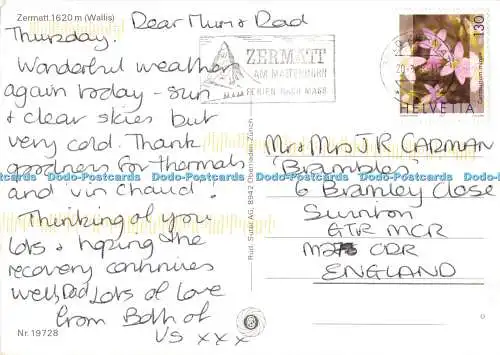 Zermatt 1620 m (Wallis)
Dear Mum & Dad
Thursday.
Wonderful weather
again today - sun
& clear skies but
very cold. Thank
goodness for thermals
and vin chaud!
Thinking of you
lots & hoping the
recovery continues
well, Dad. Lots of love
from Both of
us x x x
Nr. 19728
Rud. Suter AG, 8942 Oberrieden-Zürich
ZERMATT
AM MATTERHORN
FERIEN NACH MASS
130
HELVETIA
Mr & Mrs J R CARMAN
'Brambles'
6 Bramley Close
Swinton
GTR MCR
M27 0DR
ENGLAND
Dodo-Postcards Dodo-Postcards Dodo-Postcards Dodo-Postcards Dodo-Postcards